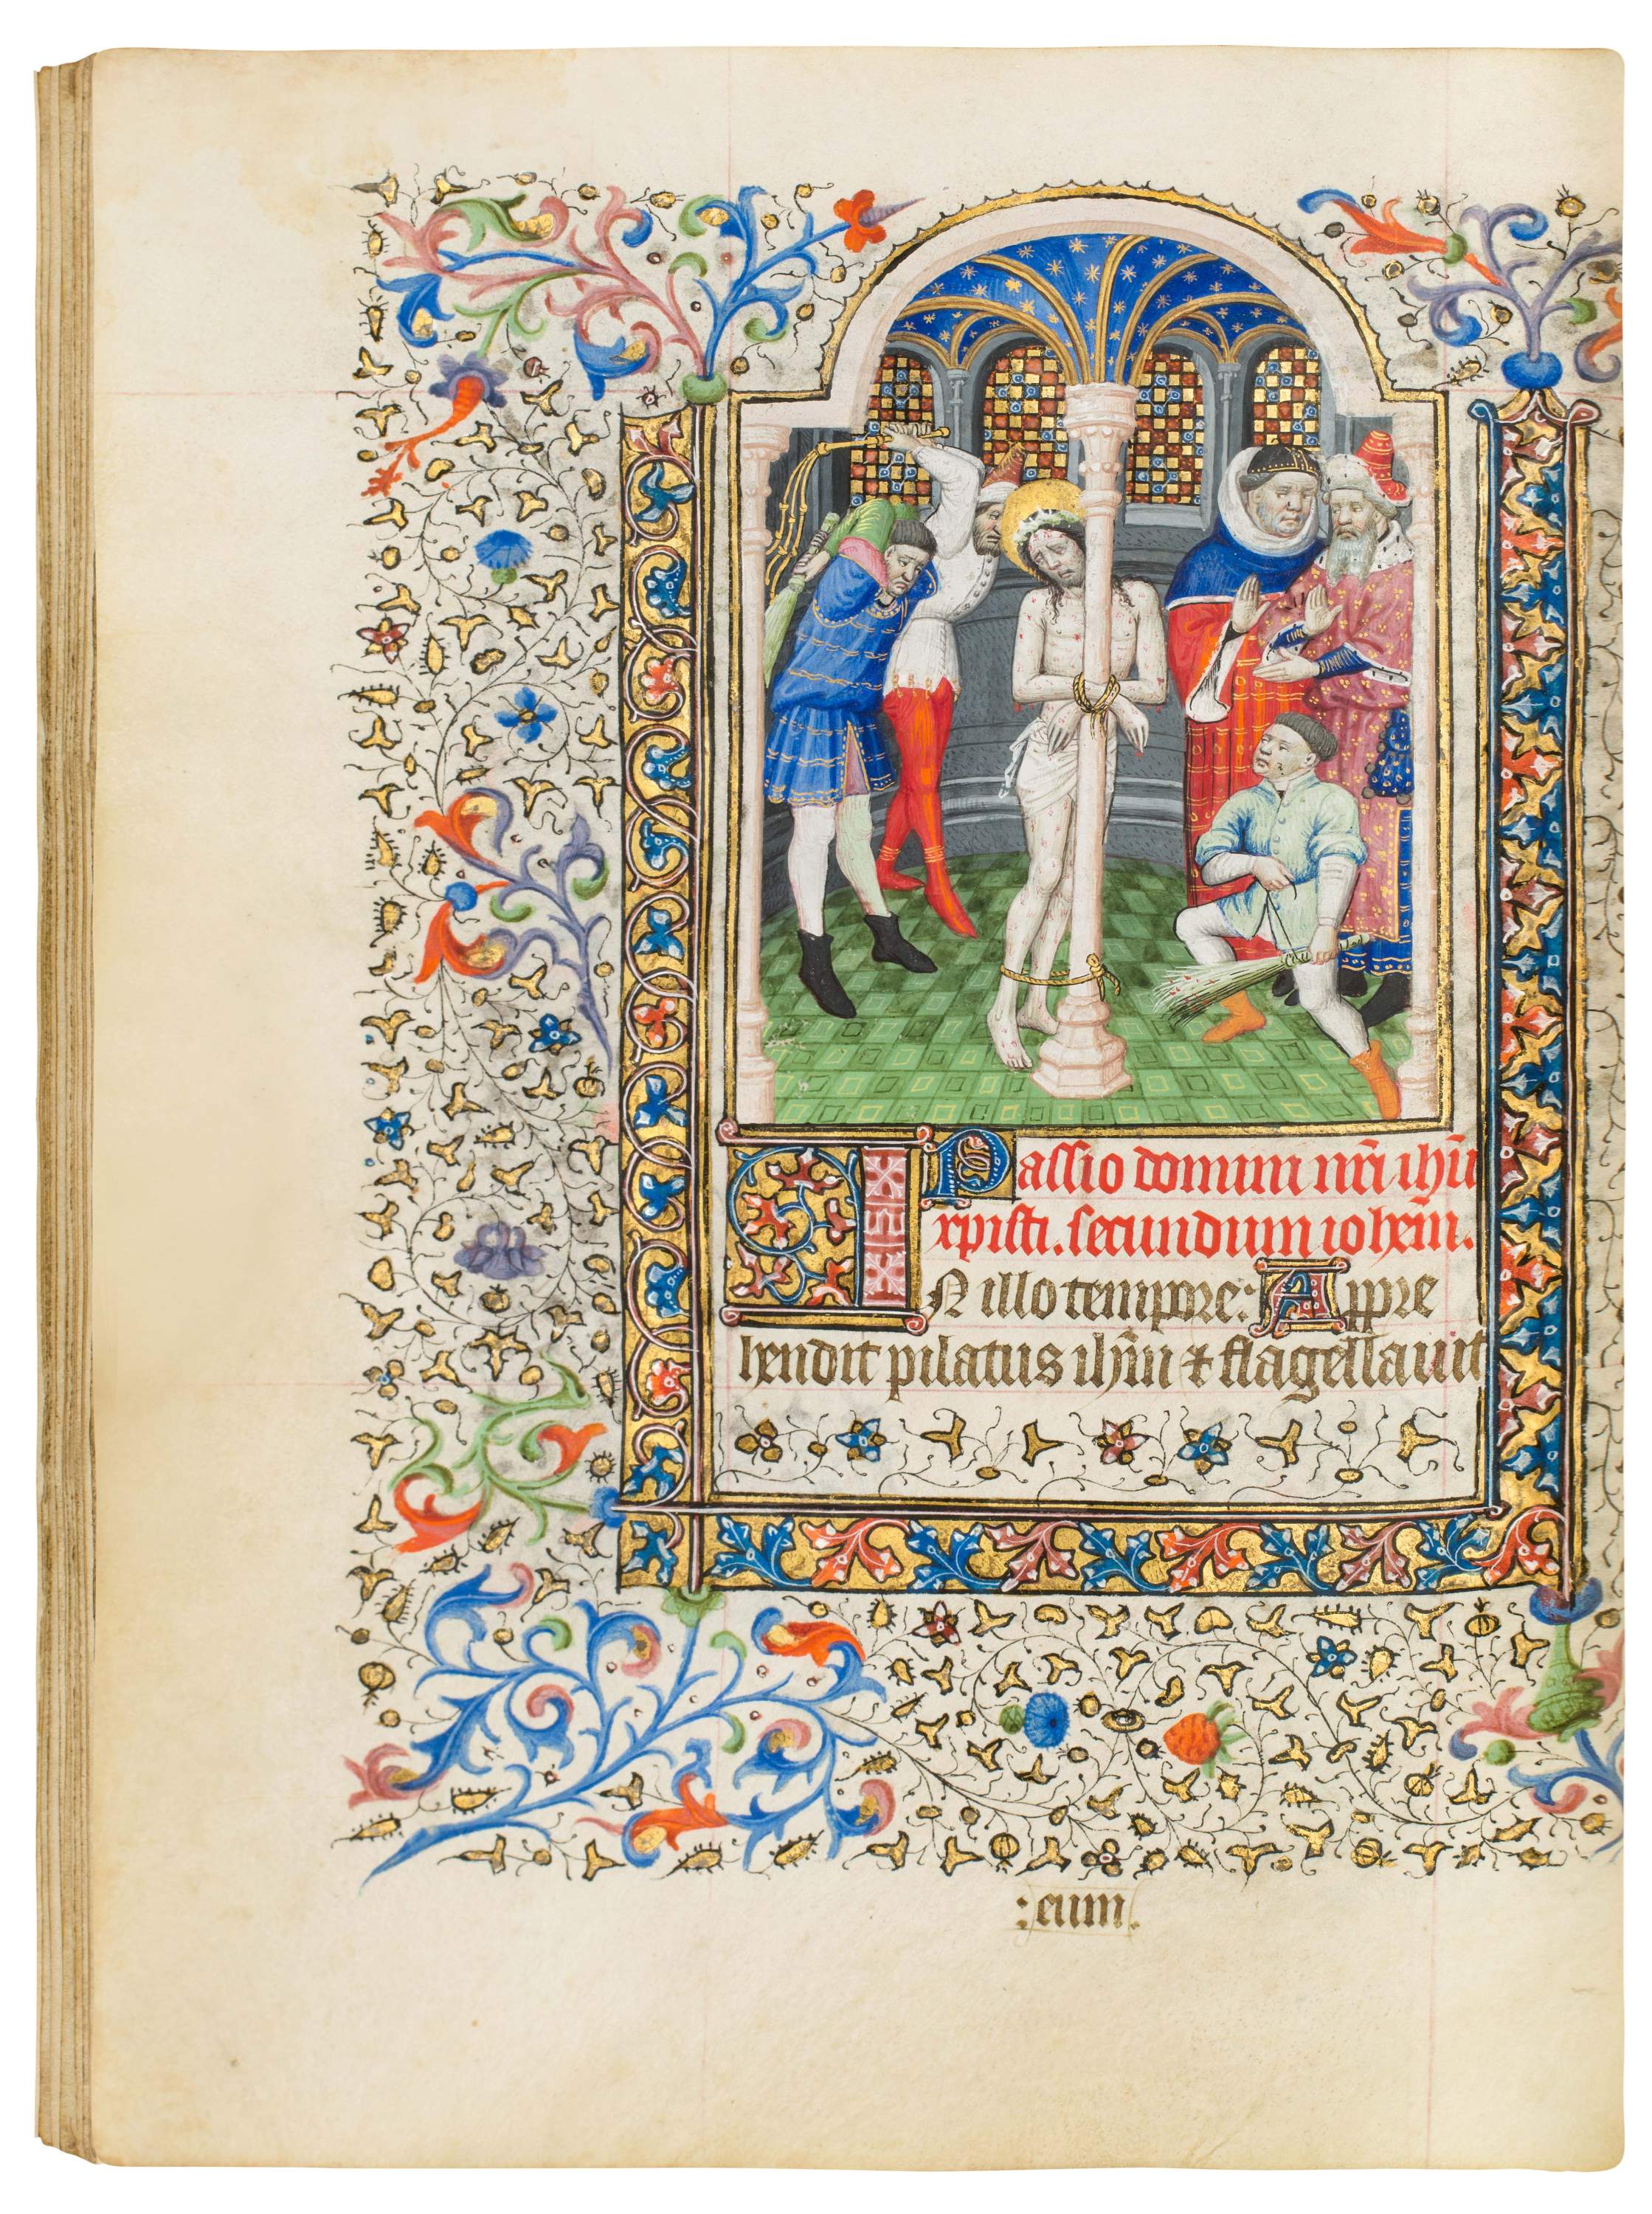 Passio domini nr̄i ihū
xpisti. secundum iohēm.
IN illo tempore: Appre
hendit pilatus ihm̄ & flagellauit
:eum.